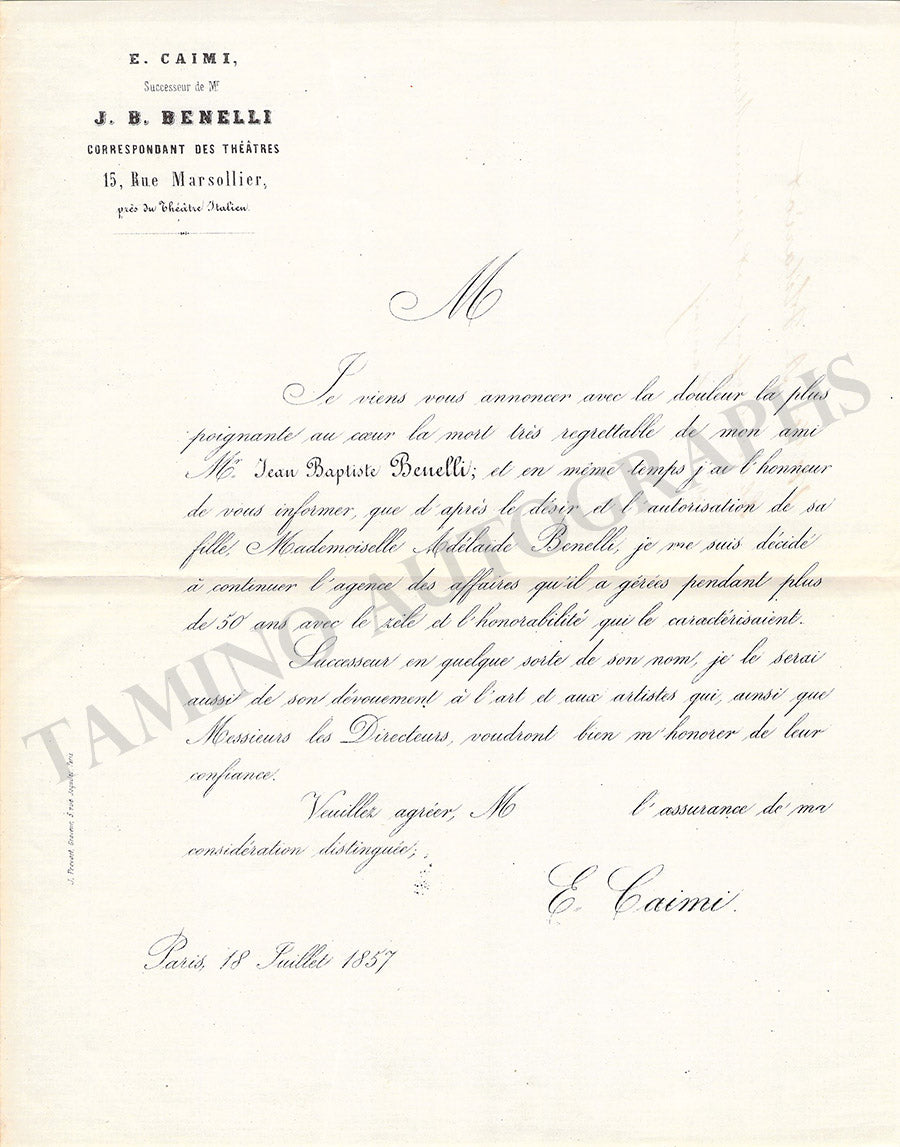 E. CAIMI,
Successeur de Mr
J. B. BENELLI
CORRESPONDANT DES THÉÂTRES
15, Rue Marsollier,
près du Théâtre Italien.
M
Je viens vous annoncer avec la douleur la plus
poignante au cœur la mort très regrettable de mon ami
Mr. Jean Baptiste Benelli; et en même temps j'ai l'honneur
de vous informer, que d'après le désir et l'autorisation de sa
fille, Mademoiselle Adélaide Benelli, je me suis décidé
à continuer l'agence des affaires qu'il a gérées pendant plus
de 50 ans avec le zèle et l'honorabilité qui le caractérisaient.
Successeur en quelque sorte de son nom, je le serai
aussi de son dévouement à l'art et aux artistes qui, ainsi que
Messieurs les Directeurs, voudront bien m'honorer de leur
confiance.
Veuillez agréer, M l'assurance de ma
considération distinguée;
E. Caimi.
Paris, 18 Juillet 1857
TAMINO AUTOGRAPHS